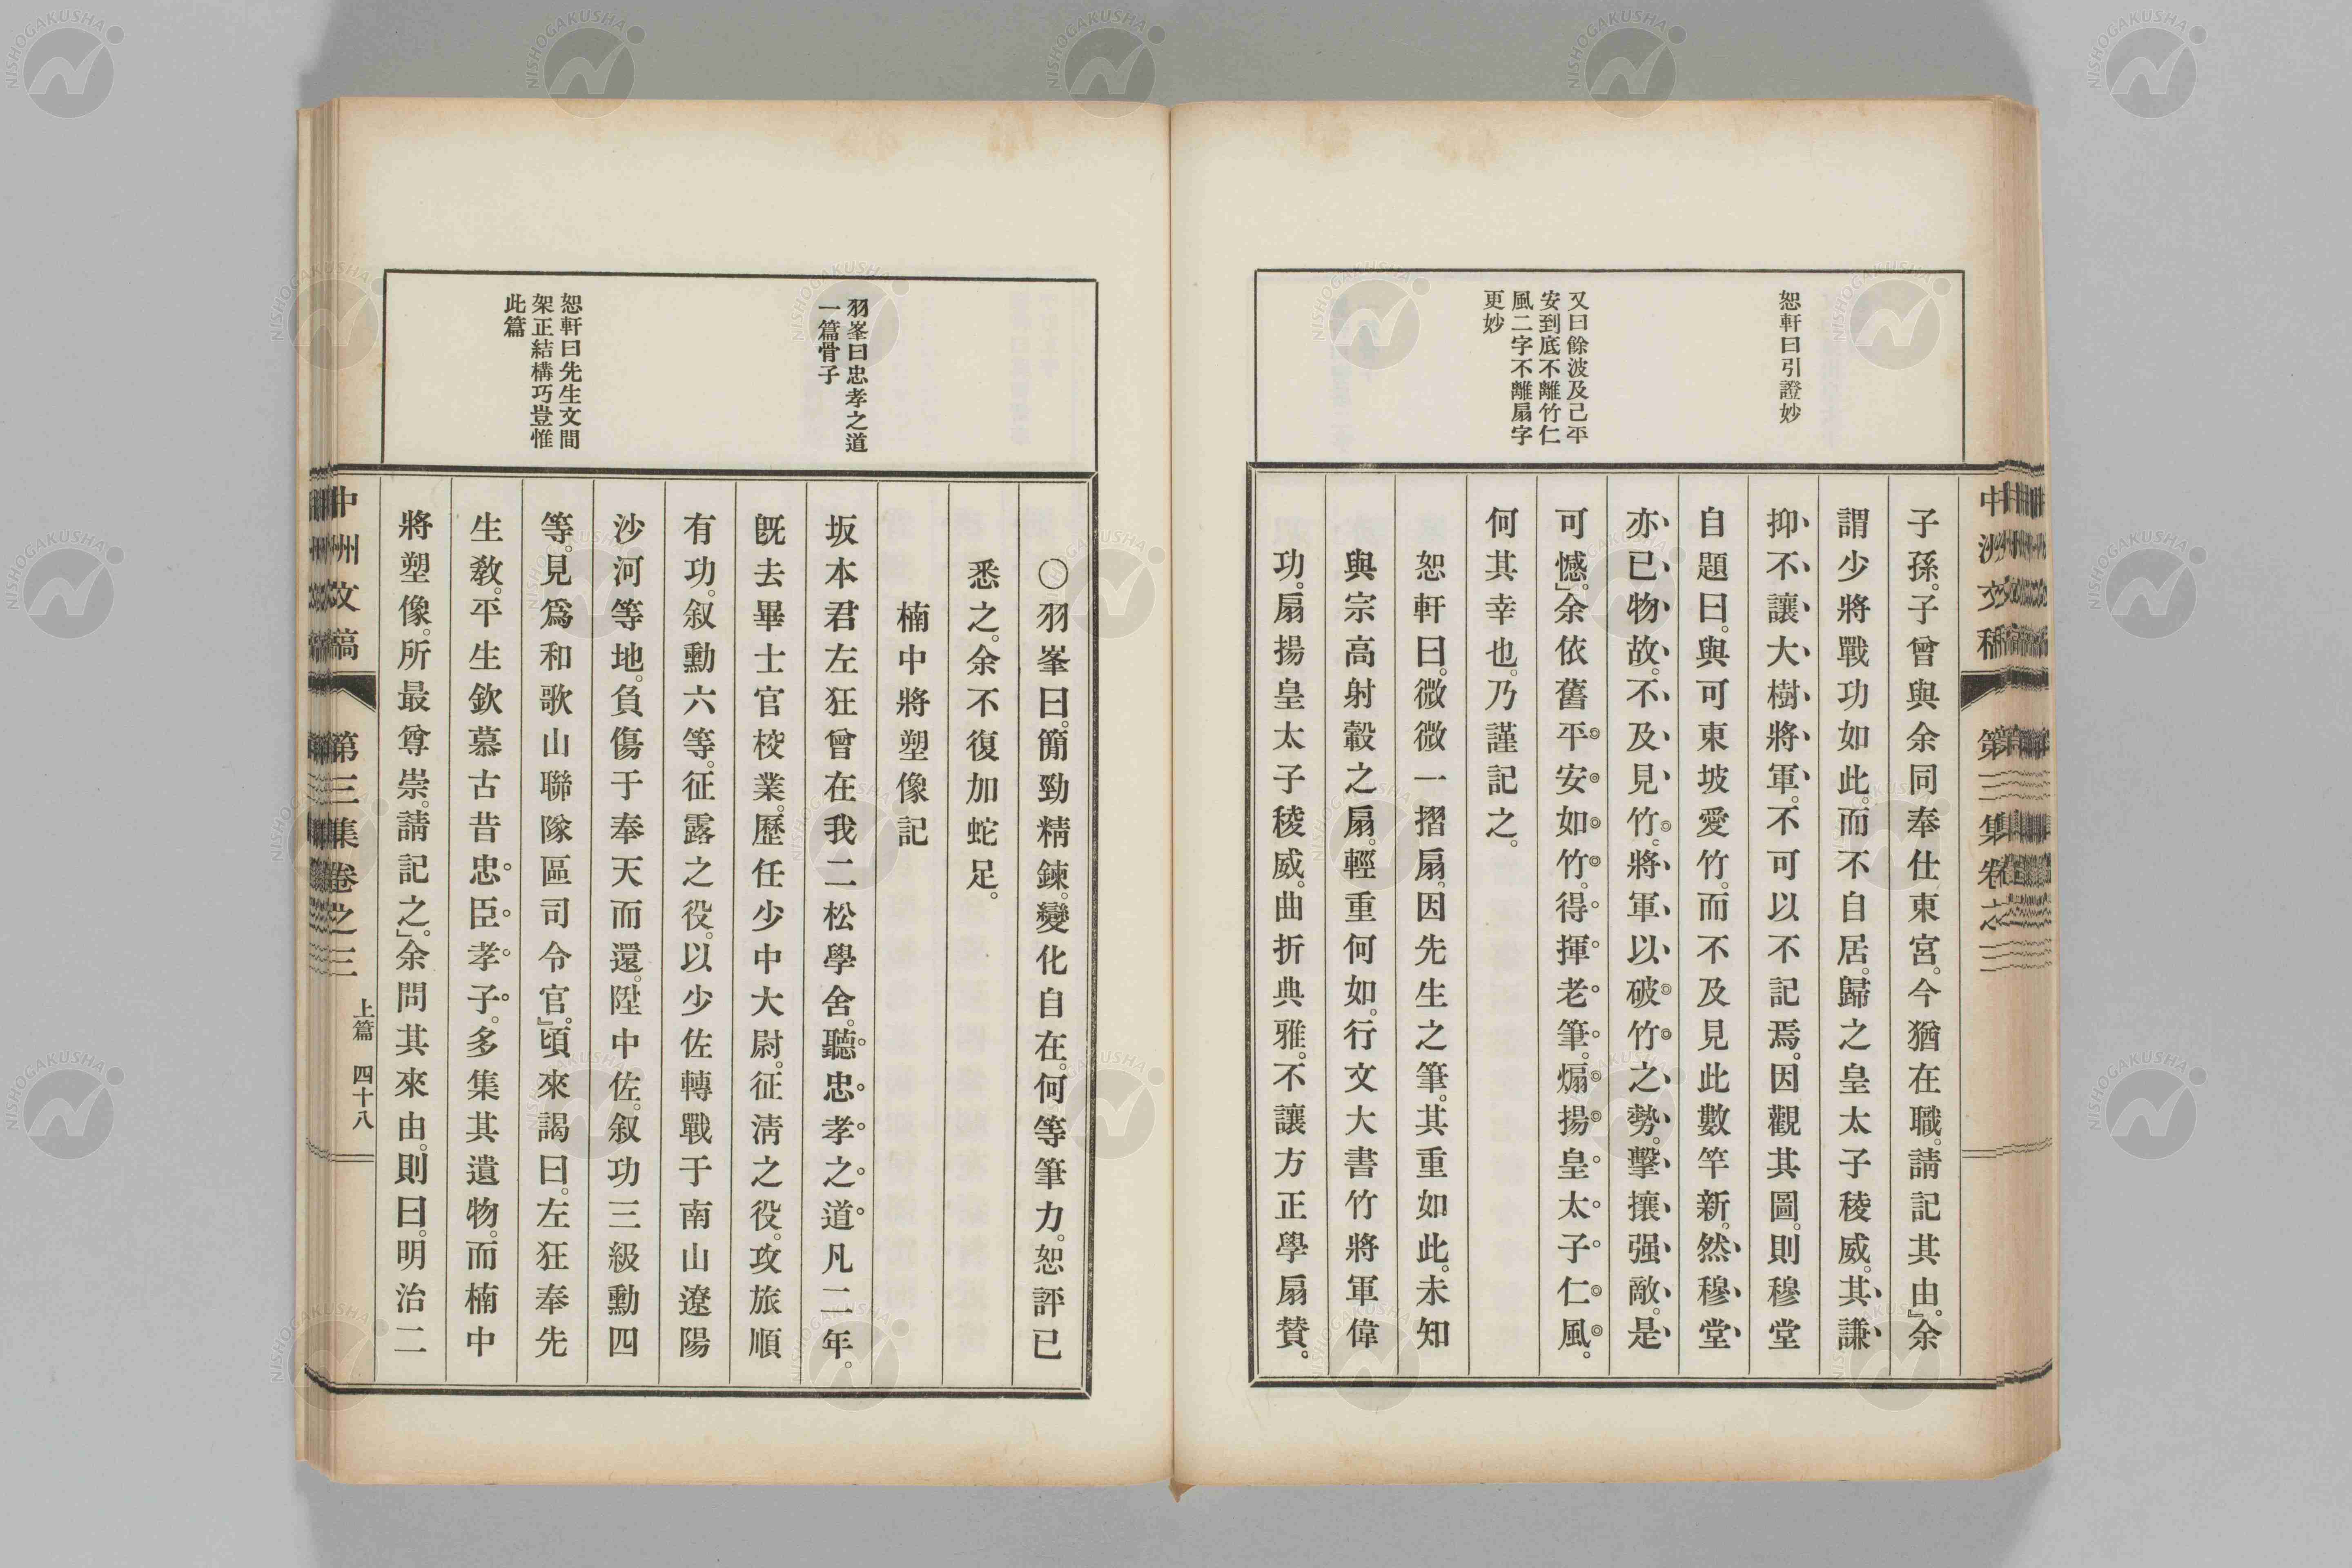 恕軒曰引證妙
又曰餘波及己平
安到底不離竹仁
風二字不離扇字
更妙
中洲文稿 第三集卷之三
子孫。子曾與余同奉仕東宮。今猶在職。請記其由。』余
謂少將戰功如此。而不自居。歸之皇太子稜威。其謙
抑不讓大樹將軍。不可以不記焉。因觀其圖。則穆堂
自題曰。與可東坡愛竹。而不及見此數竿新。然穆堂
亦已物故。不及見竹。將軍以破竹之勢。擊攘强敵。是
可憾。』余依舊平安如竹。得揮老筆。煽揚皇太子仁風。
何其幸也。乃謹記之。
恕軒曰。微微一摺扇。因先生之筆。其重如此。未知
與宗高射轂之扇。輕重何如。行文大書竹將軍偉
功。扇揚皇太子稜威。曲折典雅。不讓方正學扇贊。
羽峯曰忠孝之道
一篇骨子
恕軒曰先生文間
架正結構巧豈惟
此篇
〇羽峯曰。簡勁精鍊。變化自在。何等筆力。恕評已
悉之。余不復加蛇足。
楠中將塑像記
坂本君左狂曾在我二松學舍。聽忠孝之道凡二年。
旣去畢士官校業。歷任少中大尉。征淸之役。攻旅順
有功。叙勳六等。征露之役。以少佐轉戰于南山遼陽
沙河等地。負傷于奉天而還。陞中佐。叙功三級勳四
等。見爲和歌山聯隊區司令官。』頃來謁曰。左狂奉先
生敎。平生欽慕古昔忠臣孝子。多集其遺物。而楠中
將塑像。所最尊崇。請記之。』余問其來由。則曰。明治二
中州文稿 第三集卷之三 上篇 四十八